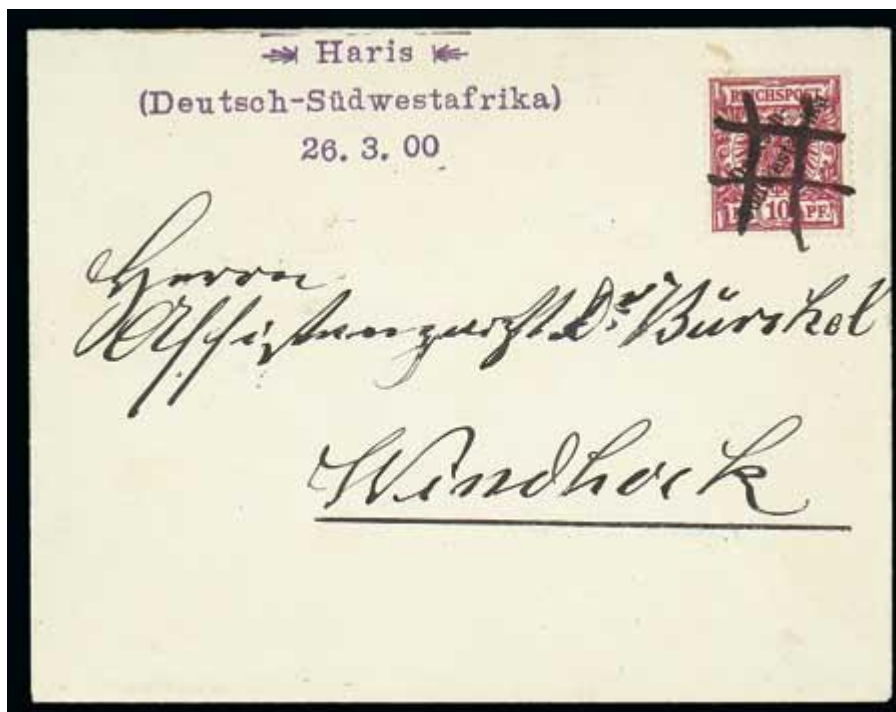 Haris
(Deutsch-Südwestafrika)
26. 3. 00
REICHSPOST
10 PF.
Herrn
Assistenzarzt Dr. Bürckel
Windhoek